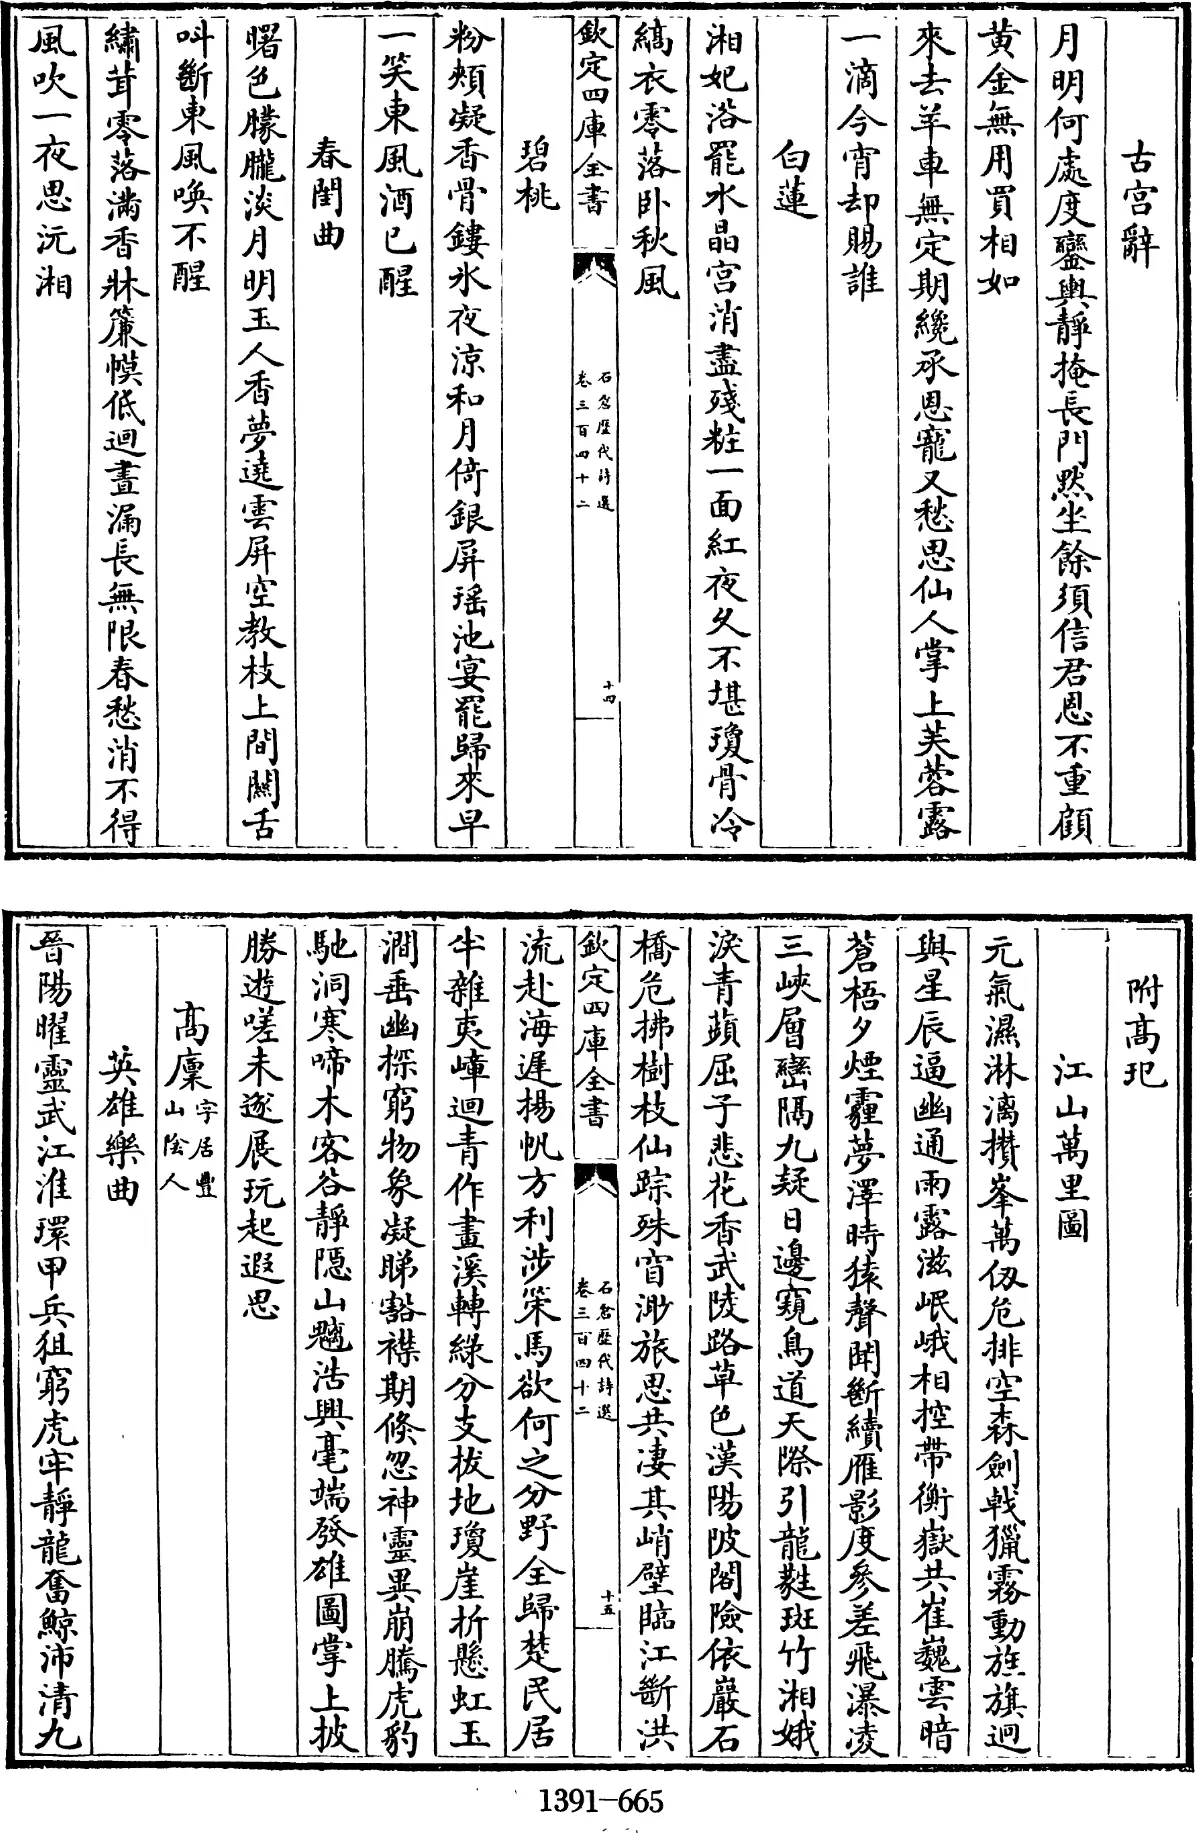 古宫辭
月明何處度鑾輿靜掩長門黙坐餘須信君恩不重顧
黄金無用買相如
來去羊車無定期纔承恩寵又愁思仙人掌上芙蓉露
一滴今宵却賜誰
白蓮
湘妃浴罷水晶宫消盡殘粧一面紅夜久不堪瓊骨冷
縞衣零落卧秋風
欽定四庫全書
石倉歷代詩選
卷三百四十二
十四
碧桃
粉頰凝香骨鏤氷夜凉和月倚銀屏瑶池宴罷歸來早
一笑東風酒已醒
春閨曲
曙色朦朧淡月明玉人香夢遶雲屏空教枝上間關舌
呌斷東風喚不醒
繡茸零落滿香牀簾幙低迴晝漏長無限春愁消不得
風吹一夜思沅湘
附髙玘
江山萬里圖
元氣濕淋漓攢峯萬仭危排空森劍㦸獵霧動旌旗迥
與星辰逼幽通雨露滋岷峨相控帶衡嶽共崔巍雲暗
蒼梧夕煙霾夢澤時猿聲聞斷續雁影度參差飛瀑凌
三峽層巒隔九疑日邊窺鳥道天際引龍㲝斑竹湘娥
淚青蘋屈子悲花香武陵路草色漢陽陂閣險依巖石
橋危拂樹枝仙踪殊窅渺旅思共凄其峭壁臨江斷洪
欽定四庫全書
石倉歷代詩選
卷三百四十二
十五
流赴海遲揚帆方利涉策馬欲何之分野全歸楚民居
半雜夷嶂迴青作畫溪轉綠分支拔地瓊崖折懸虹玉
澗垂幽探窮物象凝睇豁襟期倏忽神靈異崩騰虎豹
馳洞寒啼木客谷靜隱山魑浩興毫端發雄圖掌上披
勝遊嗟未遂展玩起遐思
髙廩字居豐山隂人
英雄樂曲
晉陽曜靈武江淮環甲兵狙窮虎牢靜龍奮鯨沛清九
1391-665